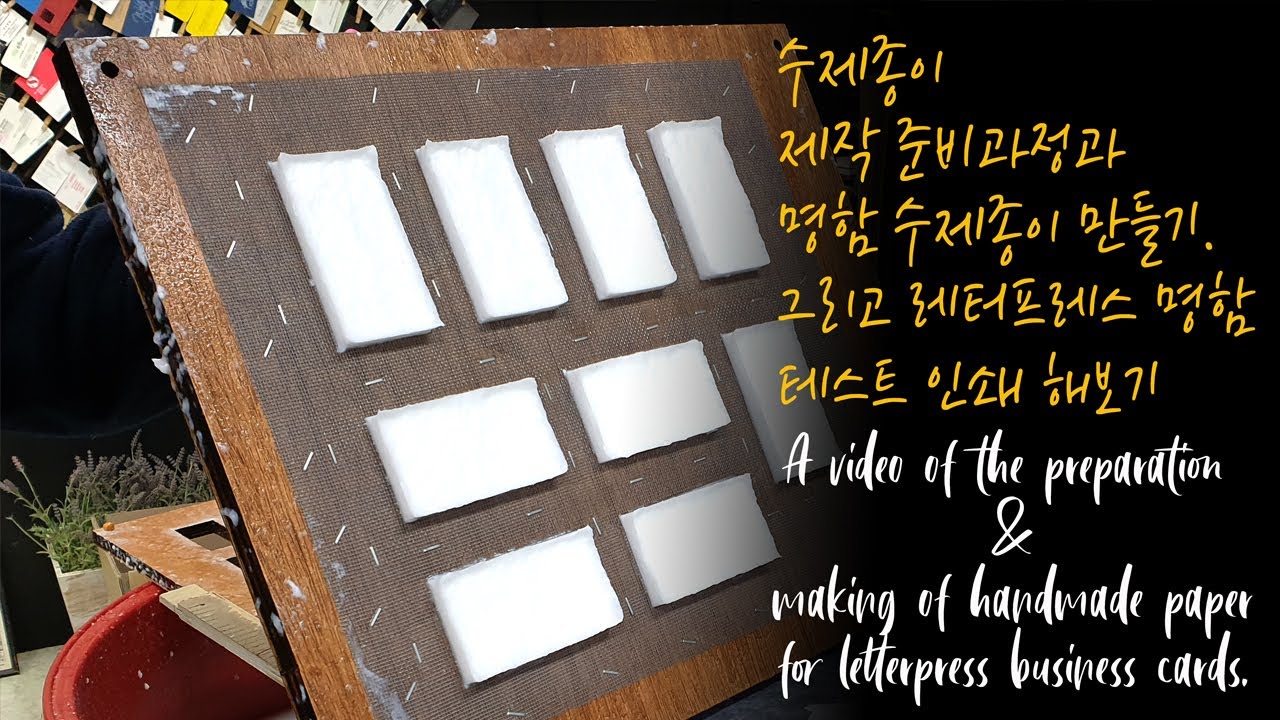 수제종이
제작 준비과정과
명함 수제종이 만들기.
그리고 레터프레스 명함
테스트 인쇄 해보기
A video of the preparation
&
making of handmade paper
for letterpress business cards.